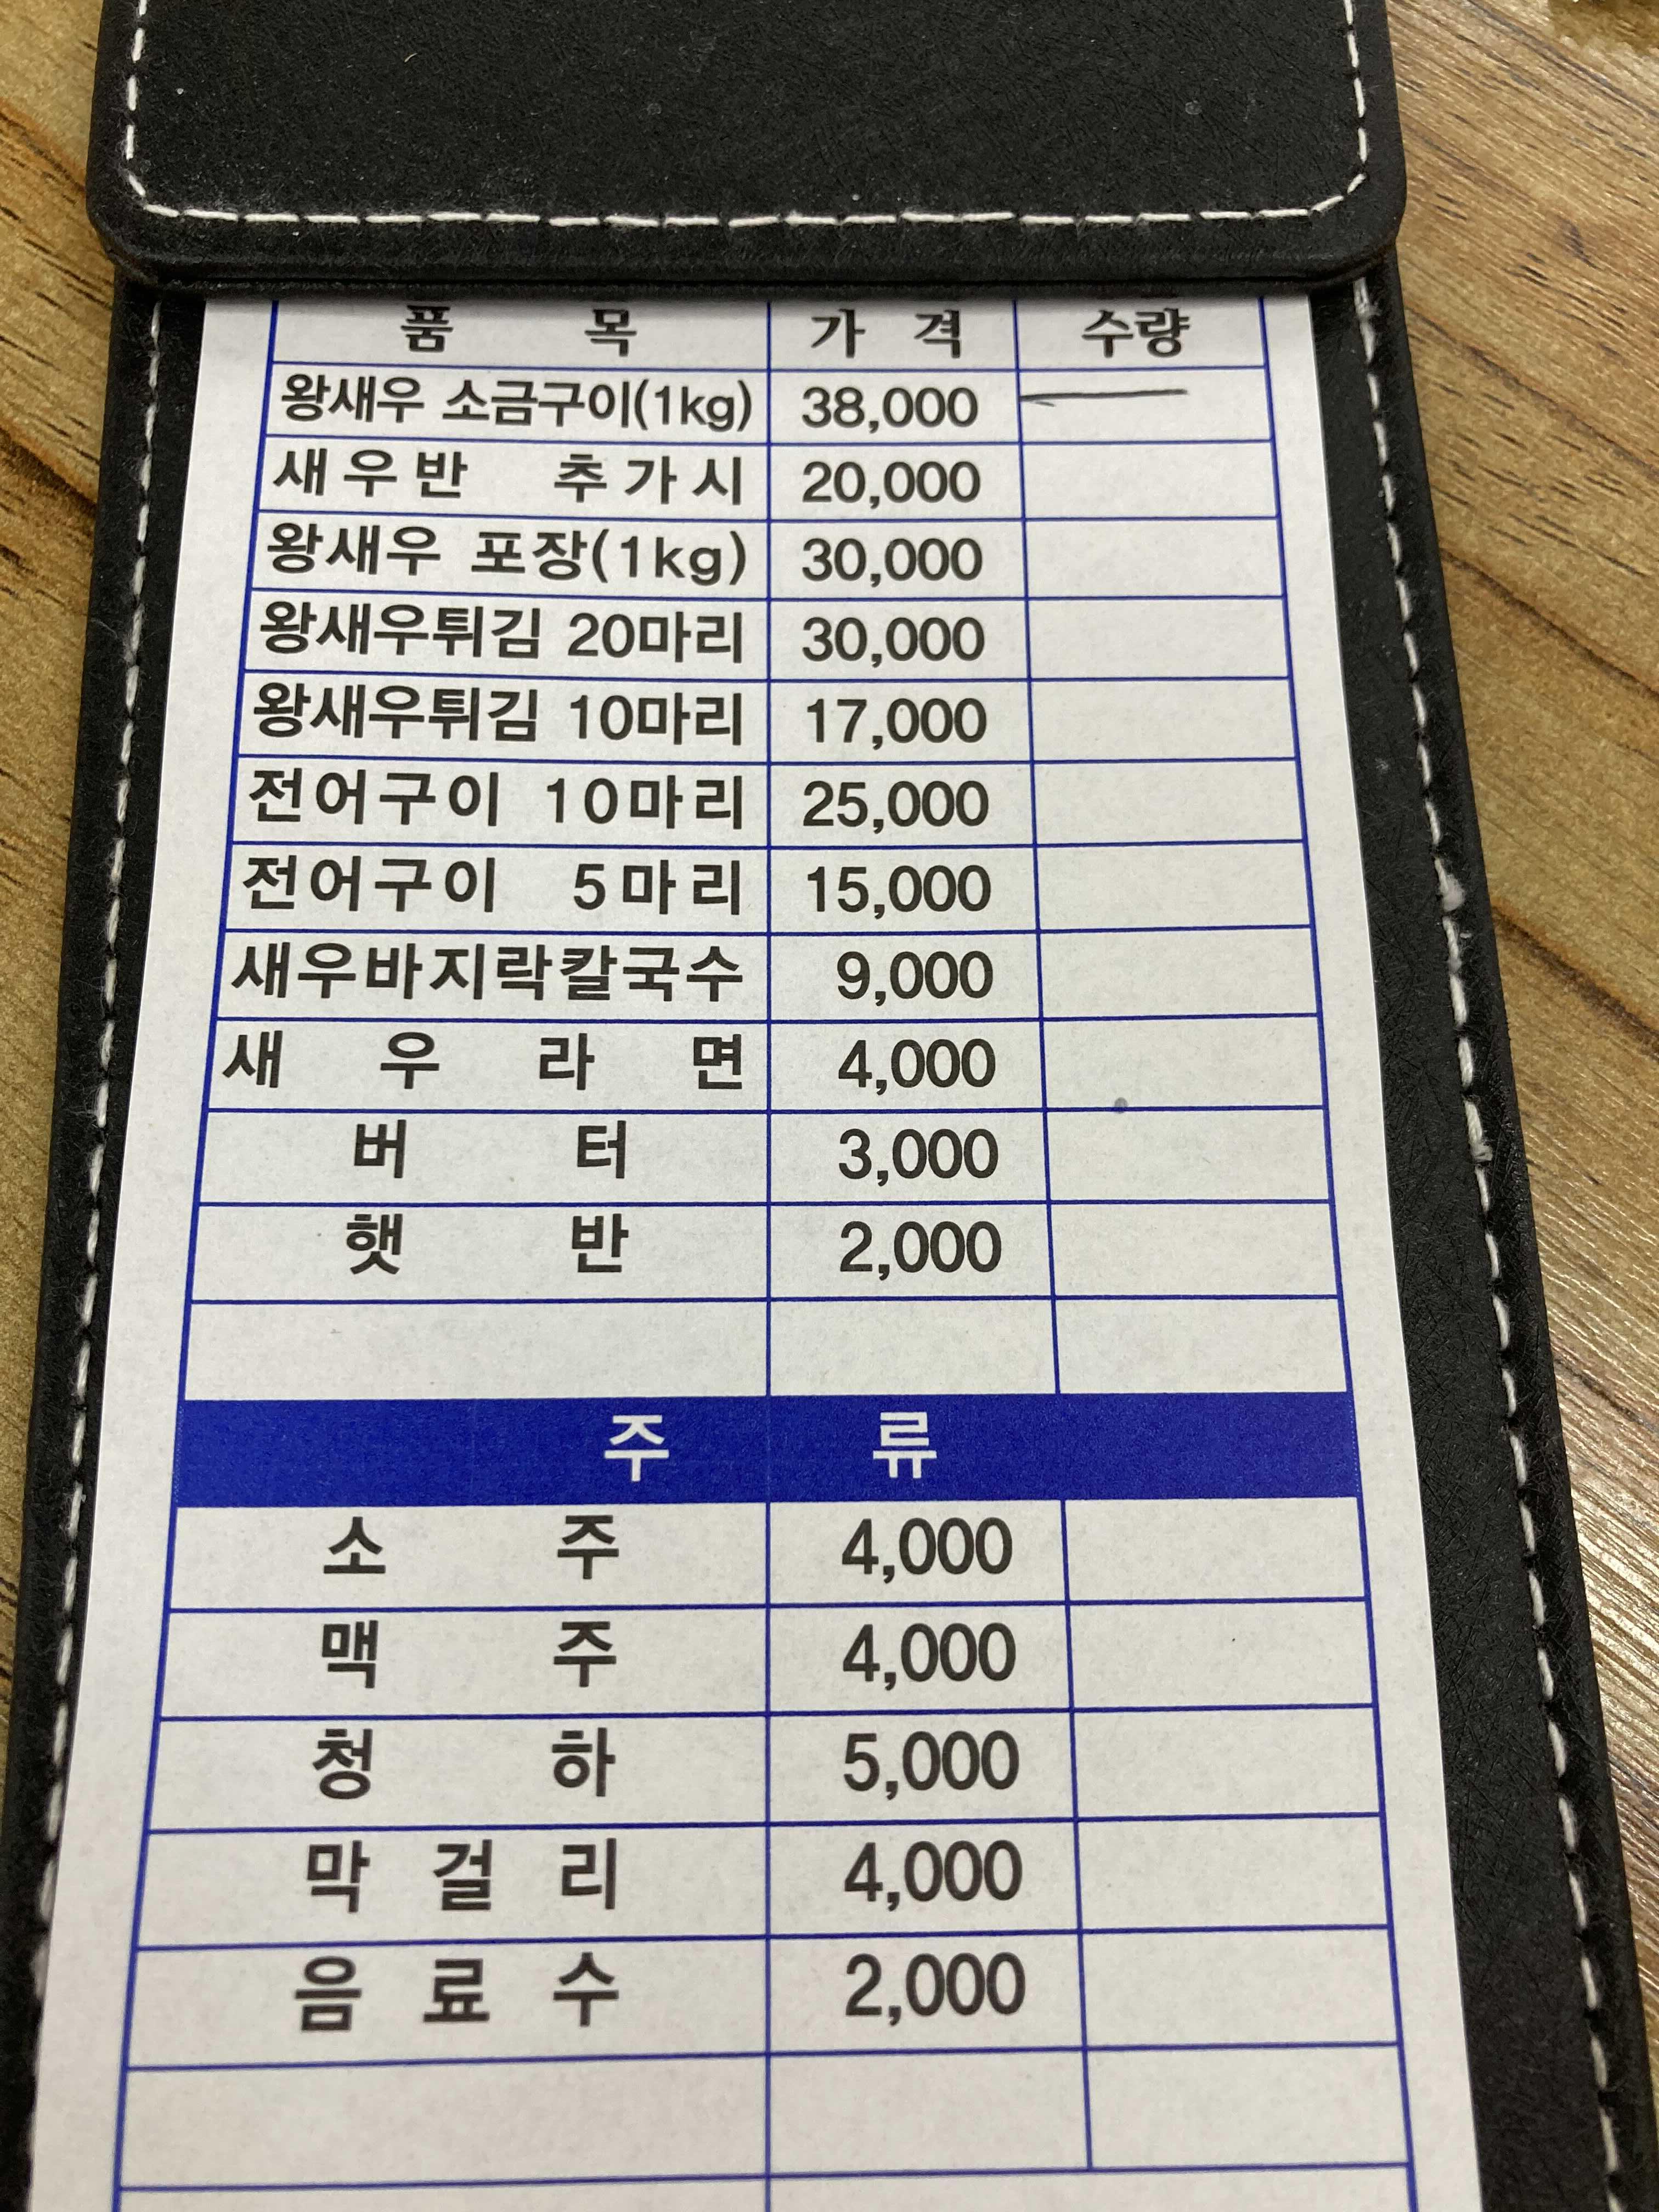 품 목 가 격 수량
왕새우 소금구이(1kg) 38,000
새우반 추가시 20,000
왕새우 포장(1kg) 30,000
왕새우튀김 20마리 30,000
왕새우튀김 10마리 17,000
전어구이 10마리 25,000
전어구이 5마리 15,000
새우바지락칼국수 9,000
새 우 라 면 4,000
버 터 3,000
햇 반 2,000
주 류
소 주 4,000
맥 주 4,000
청 하 5,000
막 걸 리 4,000
음 료 수 2,000